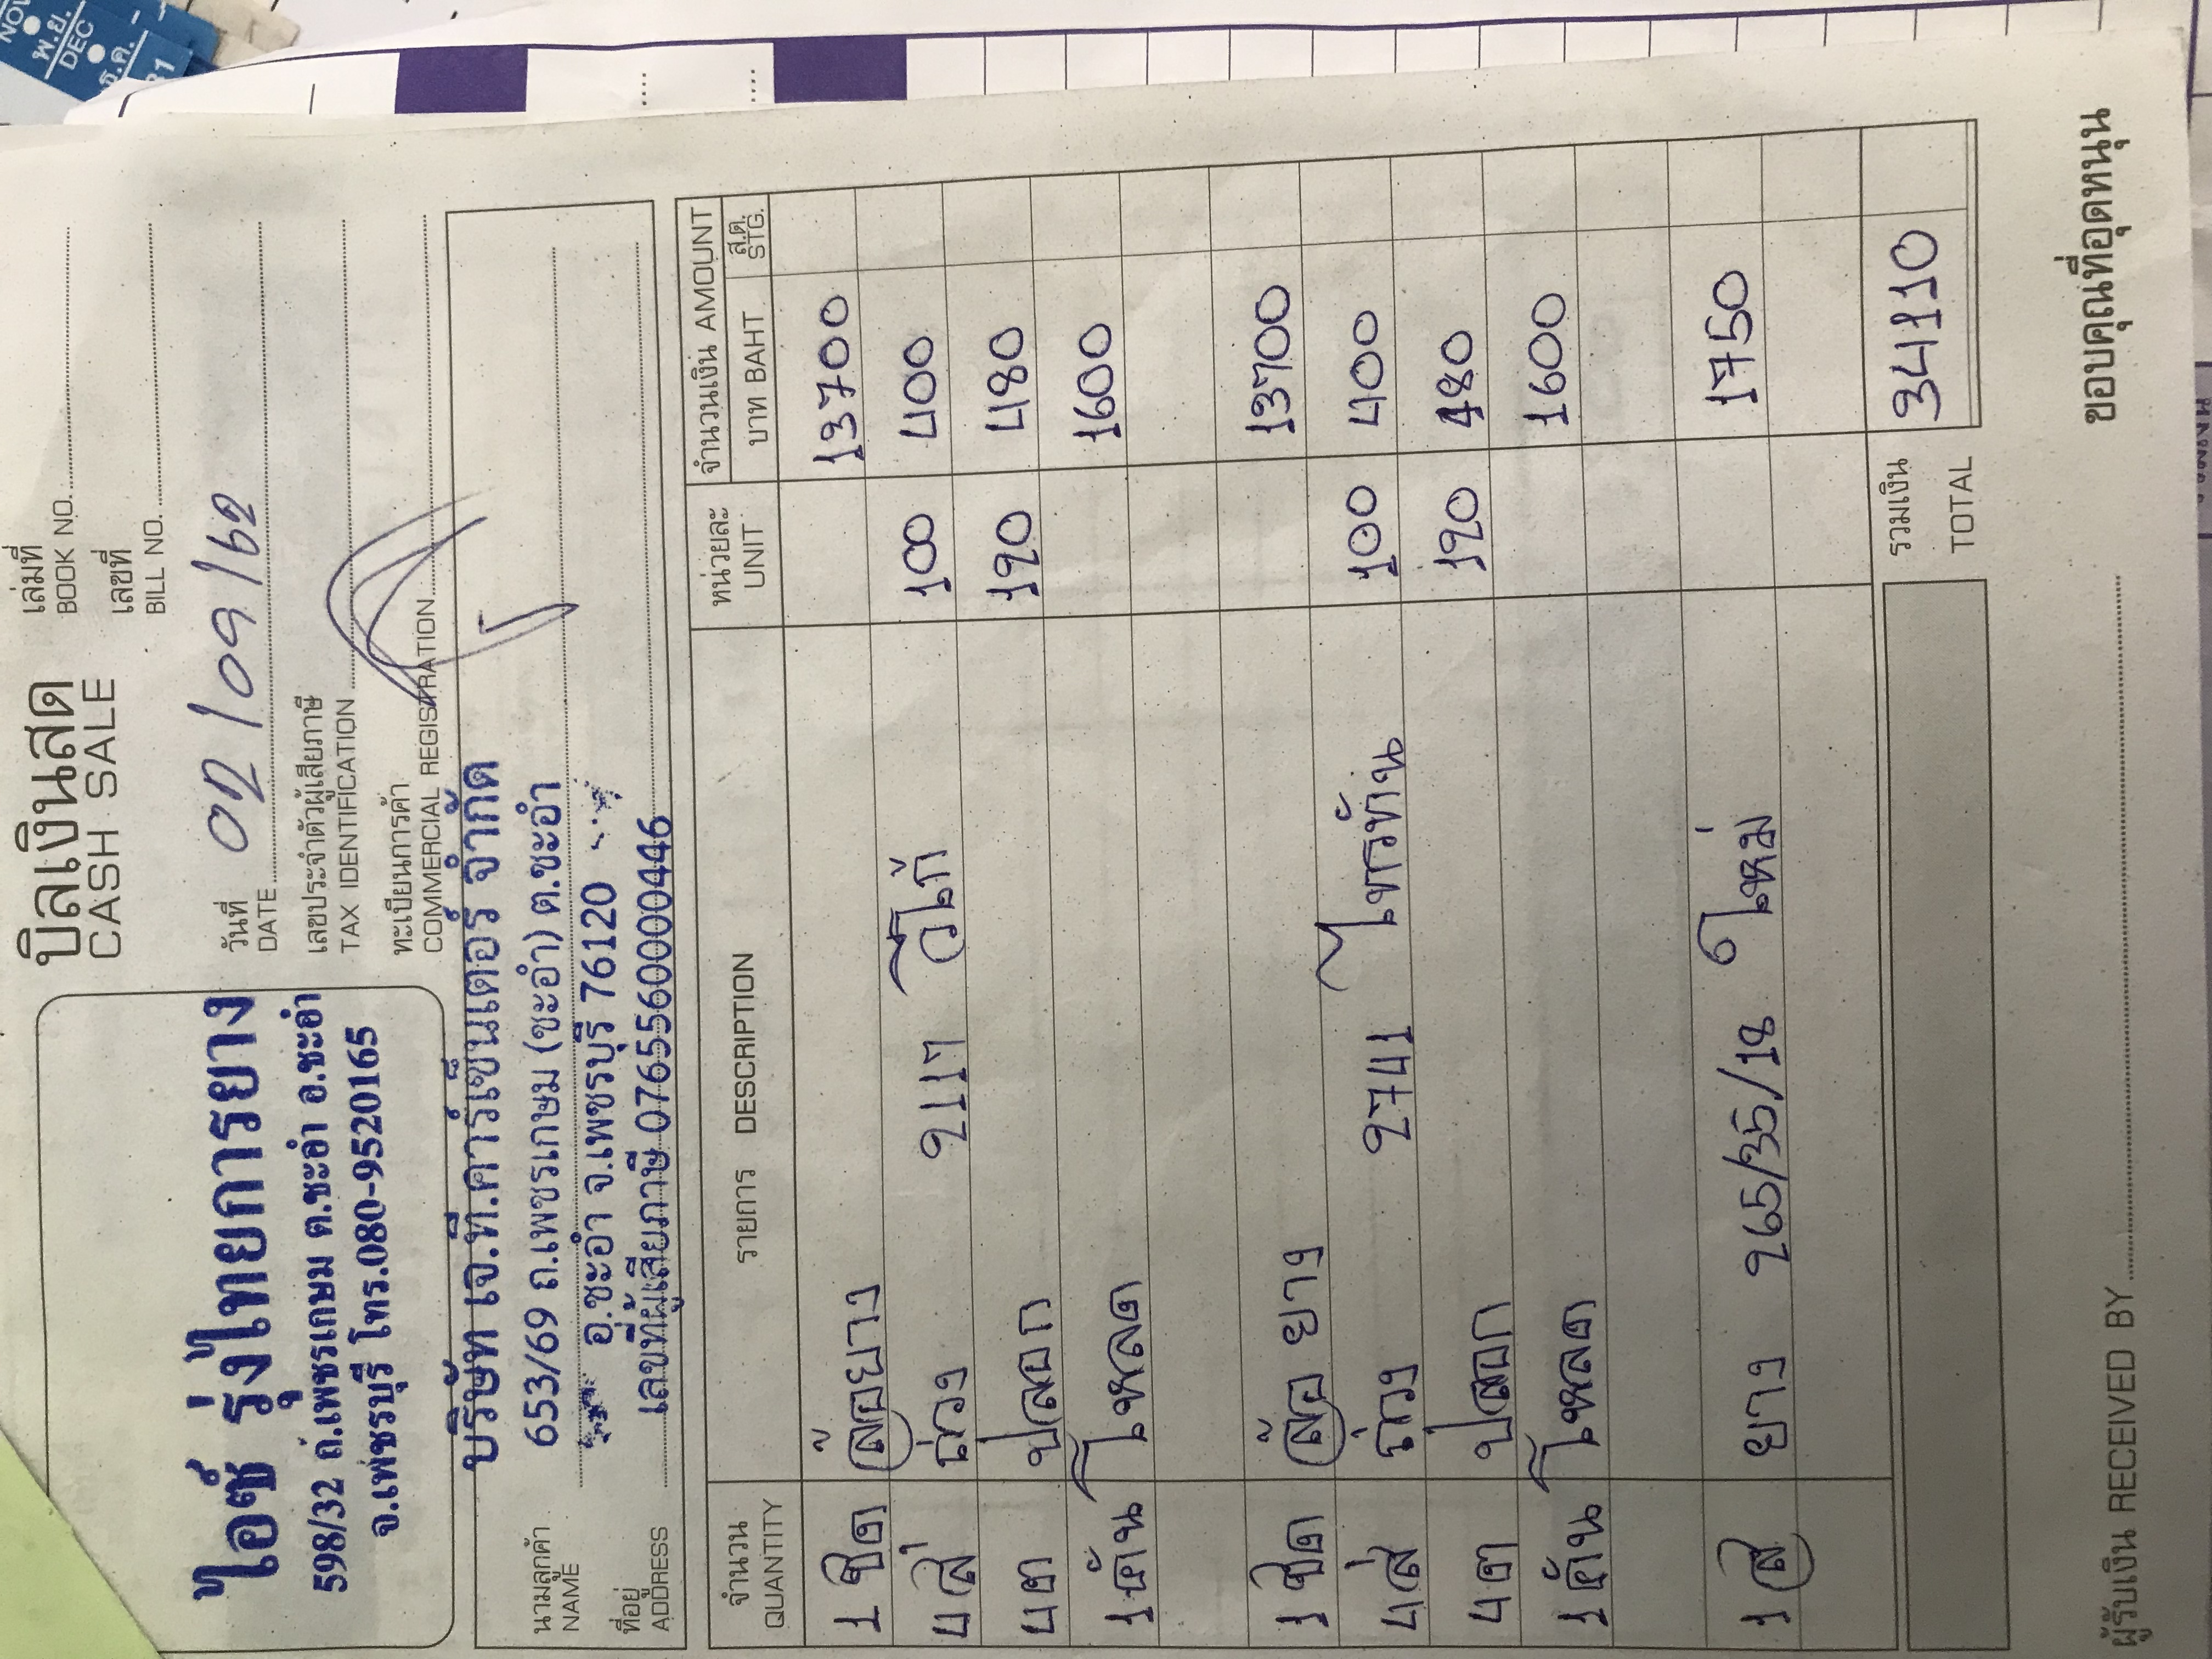 NOV
พ.ย.
DEC
ธ.ค.
31
ไอซ์ รุ่งไทยการยาง
598/32 ถ.เพชรเกษม ต.ชะอำ อ.ชะอำ
จ.เพชรบุรี โทร.080-9520165
บิลเงินสด
CASH SALE
เล่มที่
BOOK NO.
เลขที่
BILL NO.
วันที่
DATE 02/09/62
เลขประจำตัวผู้เสียภาษี
TAX IDENTIFICATION
ทะเบียนการค้า
COMMERCIAL REGISTRATION
นามลูกค้า
NAME
ที่อยู่
ADDRESS
บริษัท เจ.ที.คาร์เซ็นเตอร์ จำกัด
653/69 ถ.เพชรเกษม (ชะอำ) ต.ชะอำ
อ.ชะอำ จ.เพชรบุรี 76120
เลขที่ผู้เสียภาษี 0765560000446
จำนวน รายการ DESCRIPTION หน่วยละ จำนวนเงิน AMOUNT
QUANTITY UNIT บาท BAHT ส.ต. STG.
1 ชุด ล้อยาง 13700
4 ส้ ถ่วง 2117 วีโก้ 100 400
4 ต ปลอก 120 480
1 คัน โหลด 1600
1 ชุด ล้อ ยาง 13700
4 ส้ ถ่วง 2741 ไทรทัน 100 400
4 ต ปลอก 120 480
1 คัน โหลด 1600
1 ส ยาง 265/35/18 ใหม่ 1750
รวมเงิน
TOTAL 34110
ผู้รับเงิน RECEIVED BY
ขอบคุณที่อุดหนุน